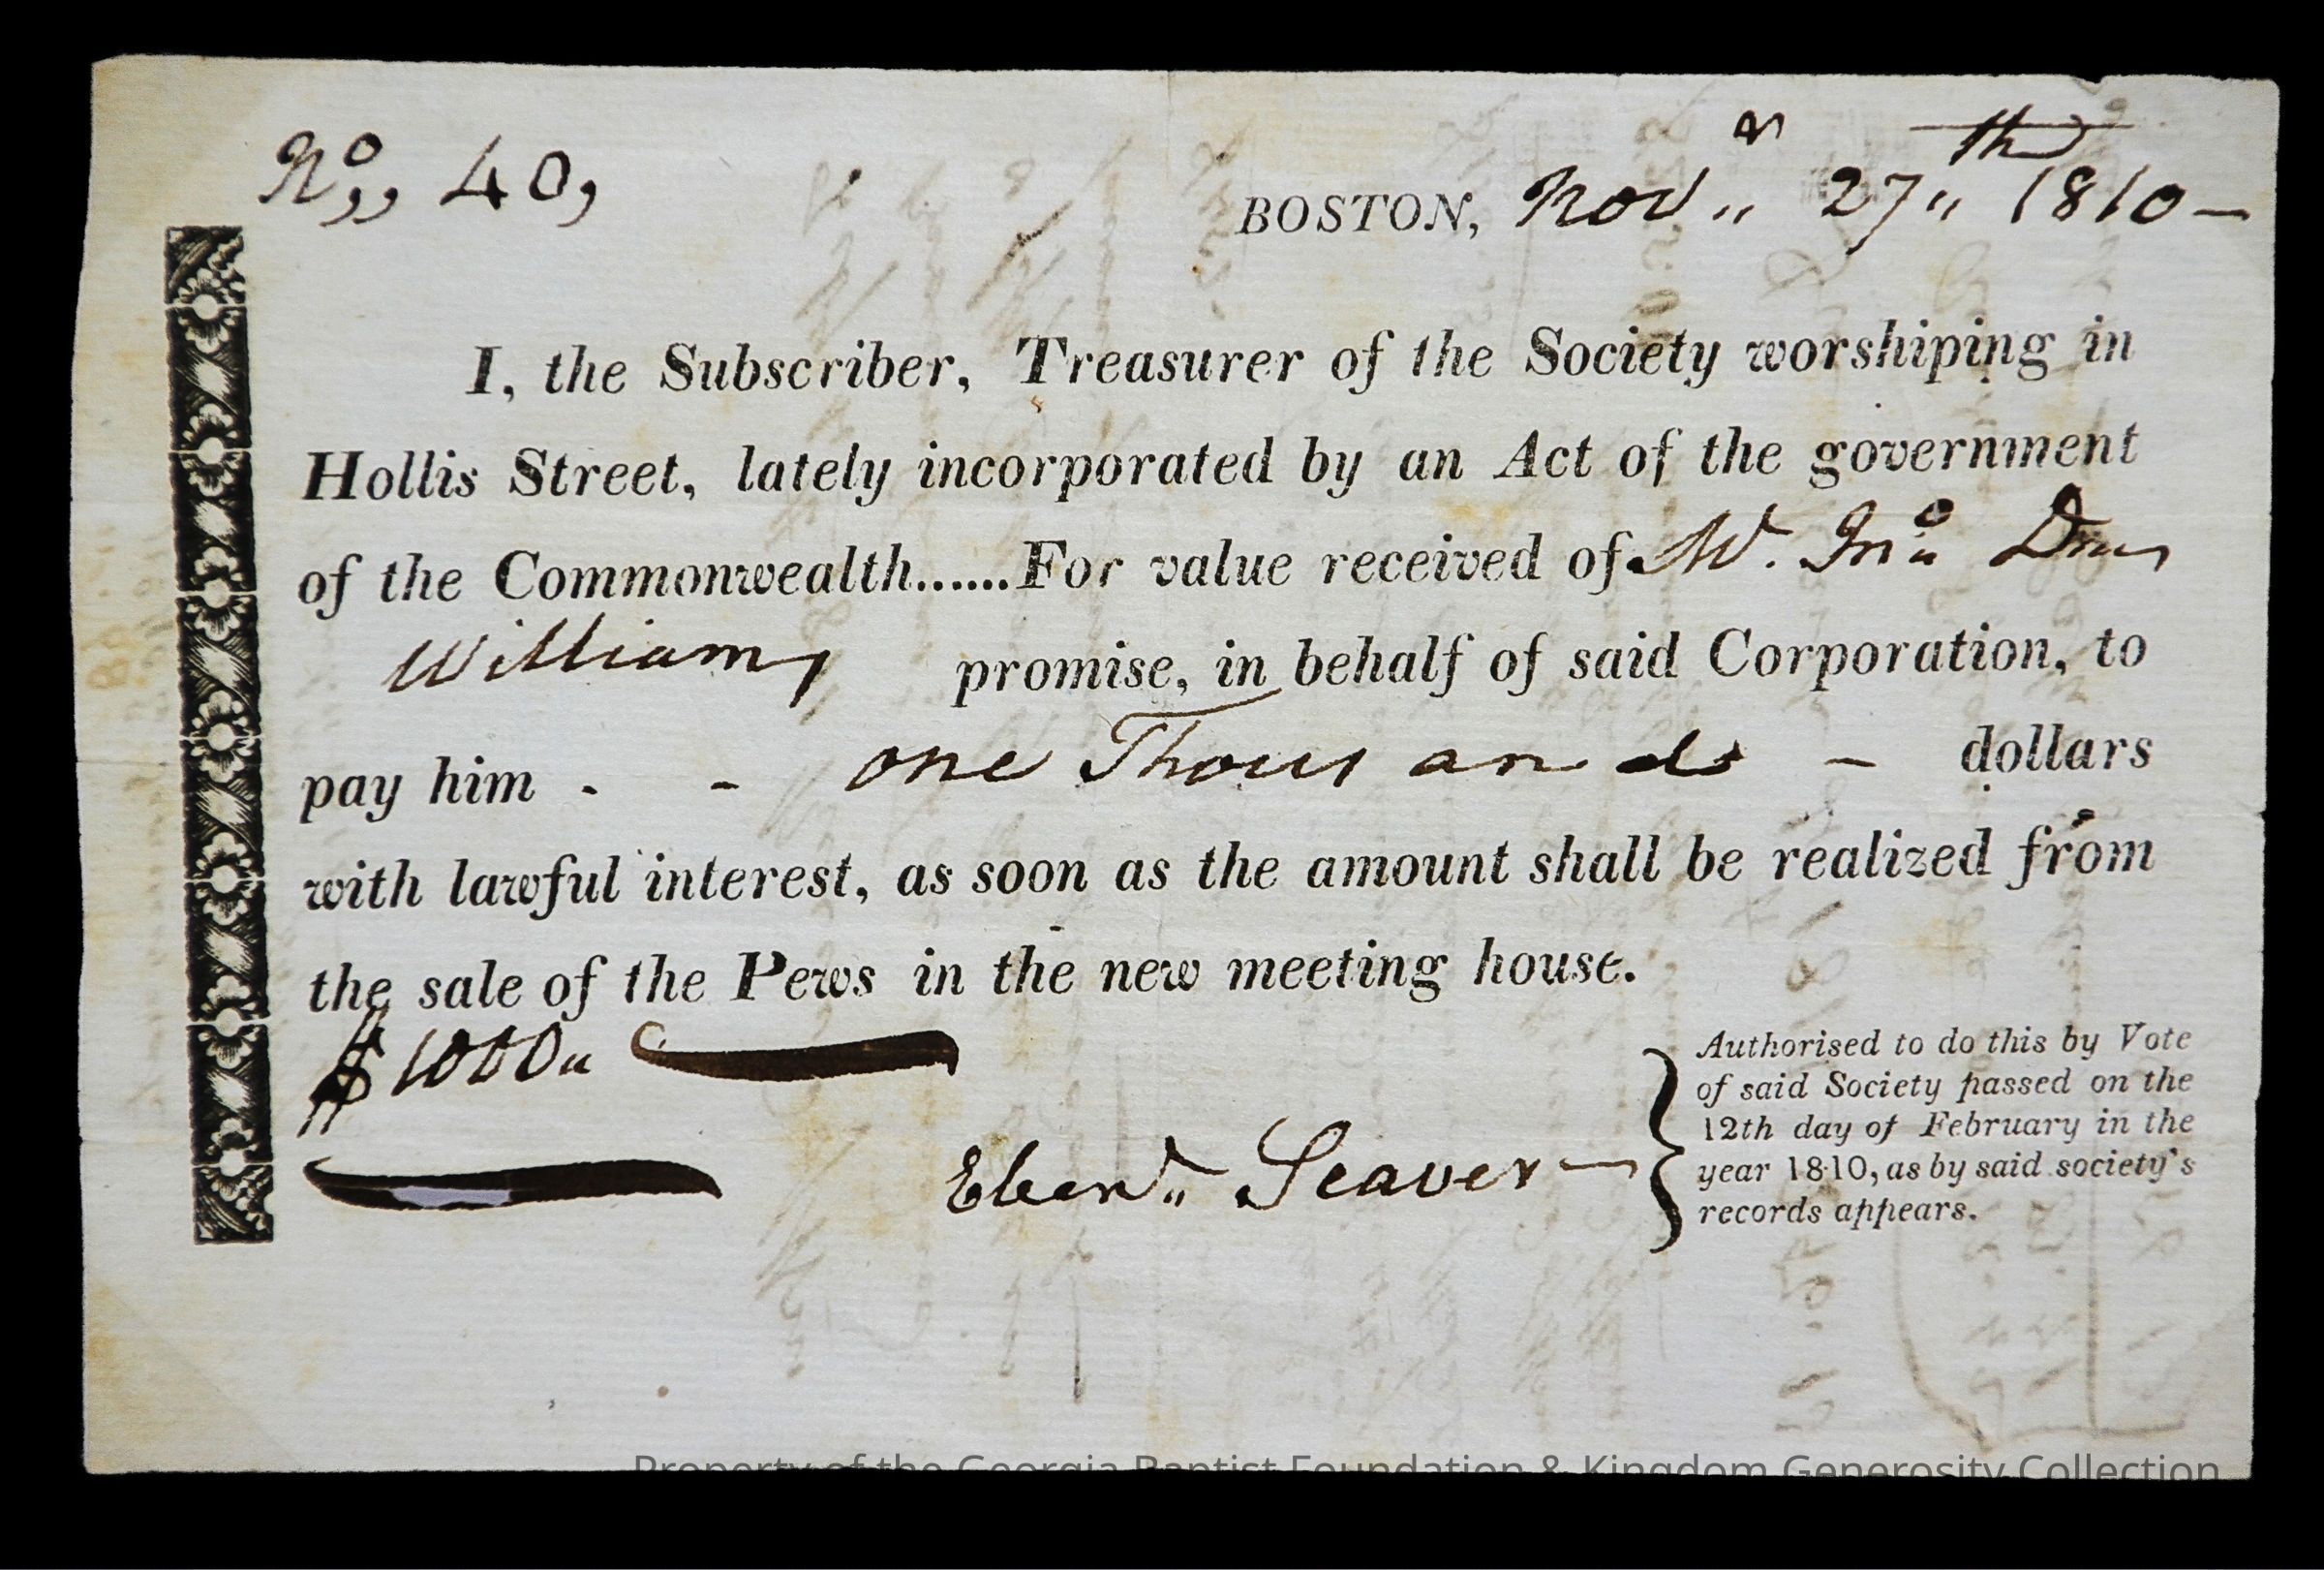 No,, 40,
BOSTON, Novr,, 27th,, 1810—
I, the Subscriber, Treasurer of the Society worshiping in
Hollis Street, lately incorporated by an Act of the government
of the Commonwealth......For value received of Mr. Jno
Williams promise, in behalf of said Corporation, to
pay him - - one Thousands - dollars
with lawful interest, as soon as the amount shall be realized from
the sale of the Pews in the new meeting house.
$1000,,
Ebenr,, Seaver
Authorised to do this by Vote
of said Society passed on the
12th day of February in the
year 1810, as by said society's
records appears.
Property of the Georgia Baptist Foundation & Kingdom Generosity Collection